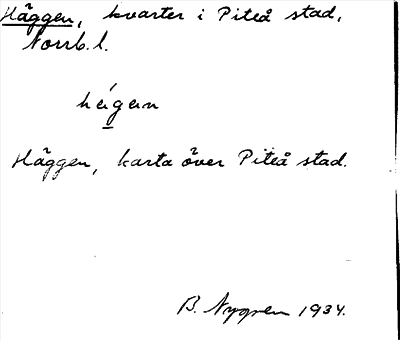 Häggen, kvarter i Piteå stad,
Norrb. l.
hägən
Häggen, karta över Piteå stad.
B. Nygren 1934.